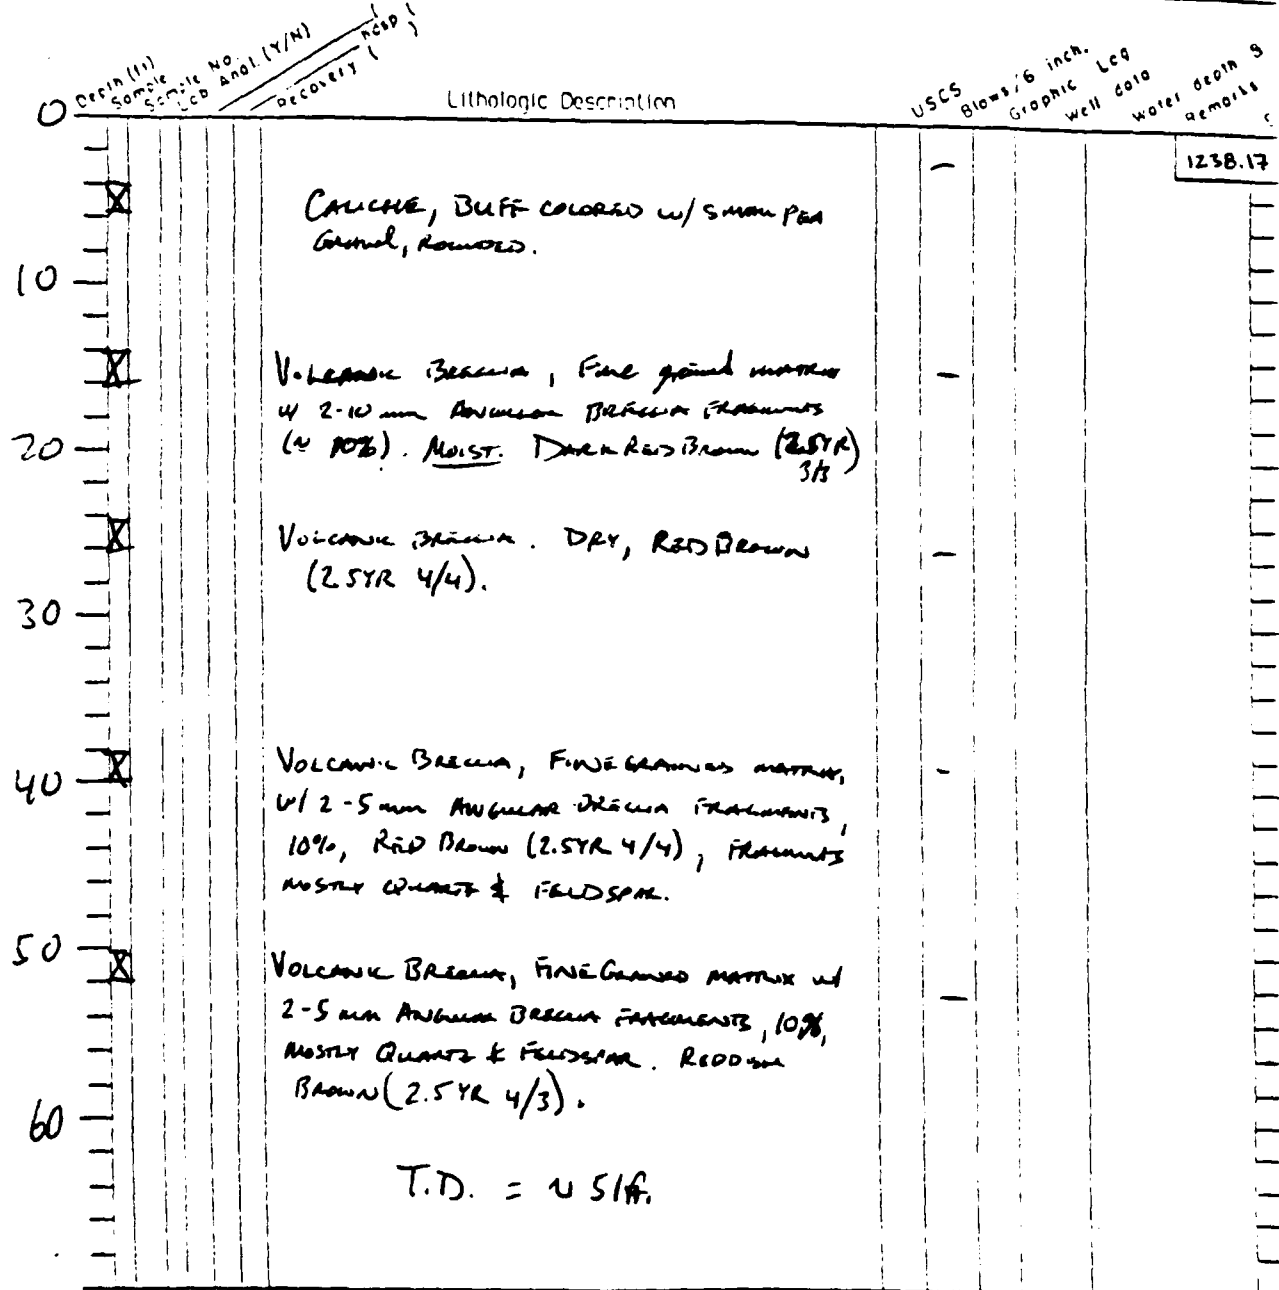 Depth (ft)
Sample
Sample No.
Lab Anal. (Y/N)
Recovery (
)
Lithologic Description
USCS
Blows/6 inch.
Graphic Log
Well data
Water depth &
Remarks
0
1238.17
CALICHE, BUFF COLORED w/ SMALL PEA
Gravel, ROUNDED.
10
VOLCANIC BRECCIA, Fine grained MATRIX
w/ 2-10 mm ANGULAR BRECCIA FRAGMENTS
(~ 10%). MOIST. DARK RED BROWN (2.5YR
3/3)
20
VOLCANIC BRECCIA. DRY, RED BROWN
(2.5YR 4/4).
30
VOLCANIC BRECCIA, FINE GRAINED MATRIX,
40
w/ 2-5 mm ANGULAR BRECCIA FRAGMENTS,
10%, RED BROWN (2.5YR 4/4), FRAGMENTS
MOSTLY QUARTZ & FELDSPAR.
50
VOLCANIC BRECCIA, FINE GRAINED MATRIX w/
2-5 mm ANGULAR BRECCIA FRAGMENTS, 10%,
MOSTLY QUARTZ & FELDSPAR. REDDISH
BROWN (2.5YR 4/3).
60
T.D. = ~ 51 ft.